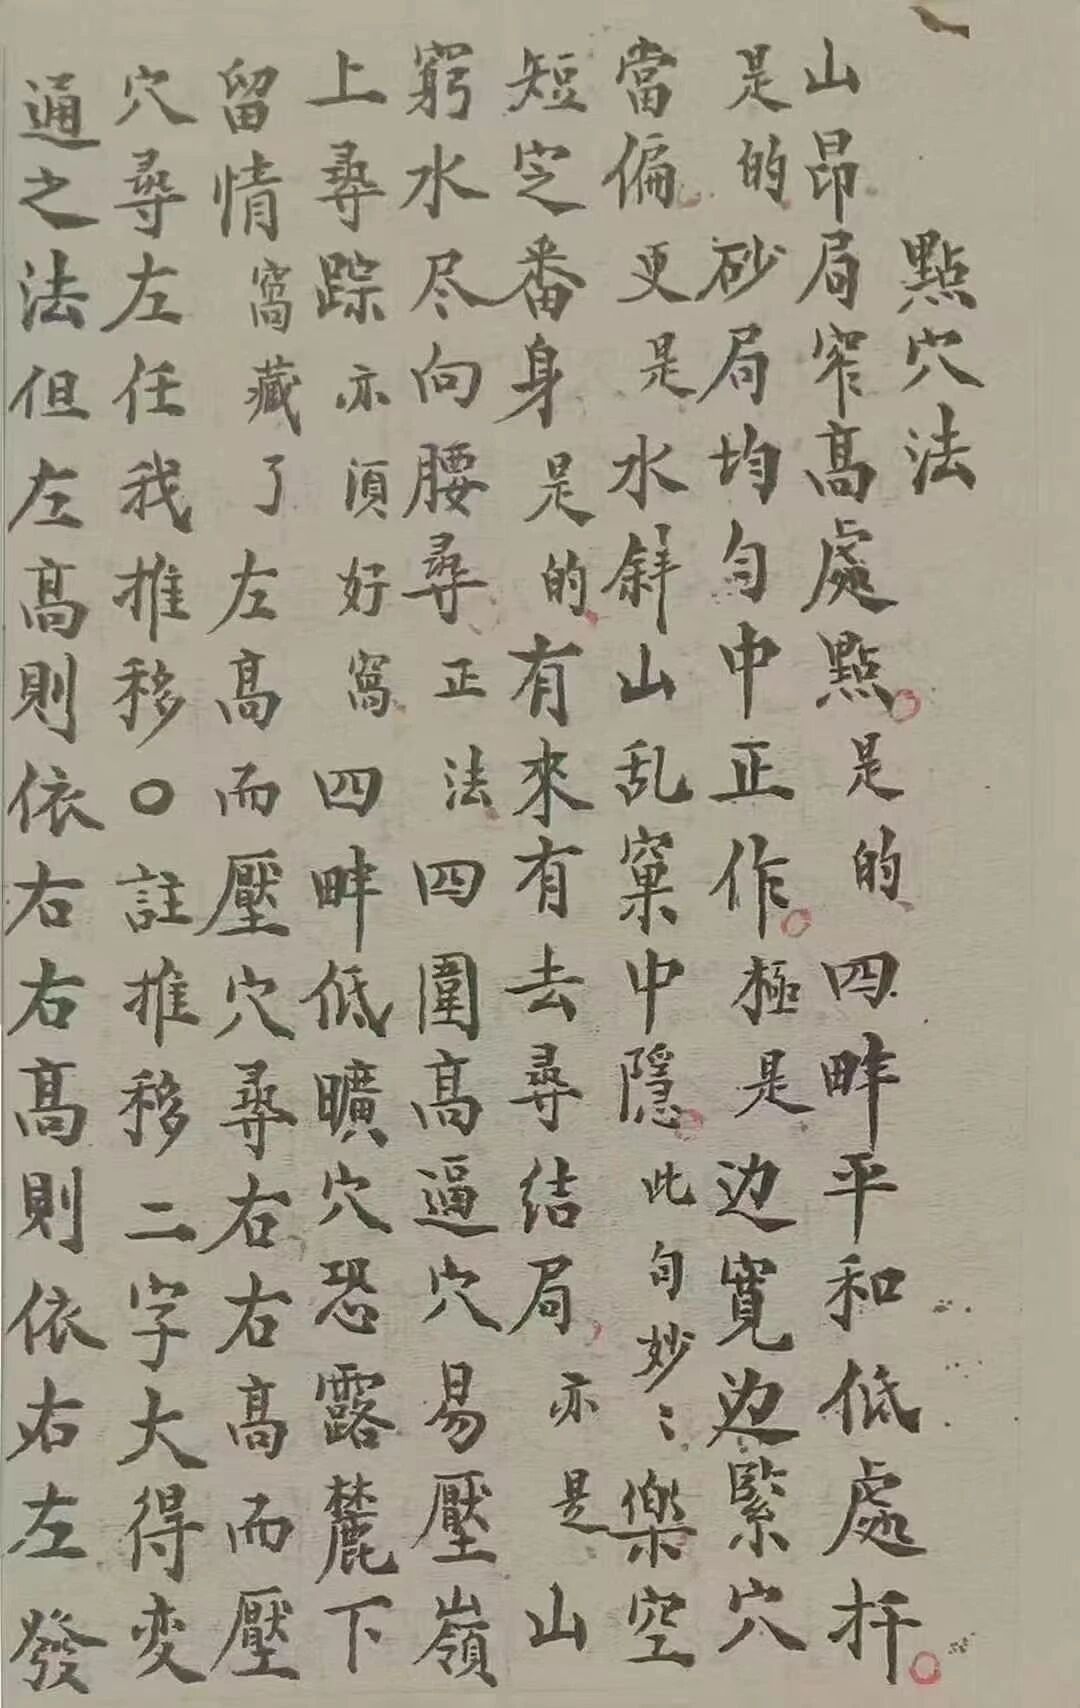 點穴法
山昂局窄高處點是的四畔平和低處扦
是的砂局均匀中正作極是边寬边緊穴
當偏更是水斜山乱窠中隱此句妙〻樂空
短定番身是的有來有去尋结局亦是山
窮水尽向腰尋正法四圍高逼穴易壓嶺
上尋踪亦須好窩四畔低曠穴恐露麓下
留情窩藏了左高而壓穴尋右右高而壓
穴尋左任我推移〇註推移二字大得变
通之法但左高則依右右高則依右左發